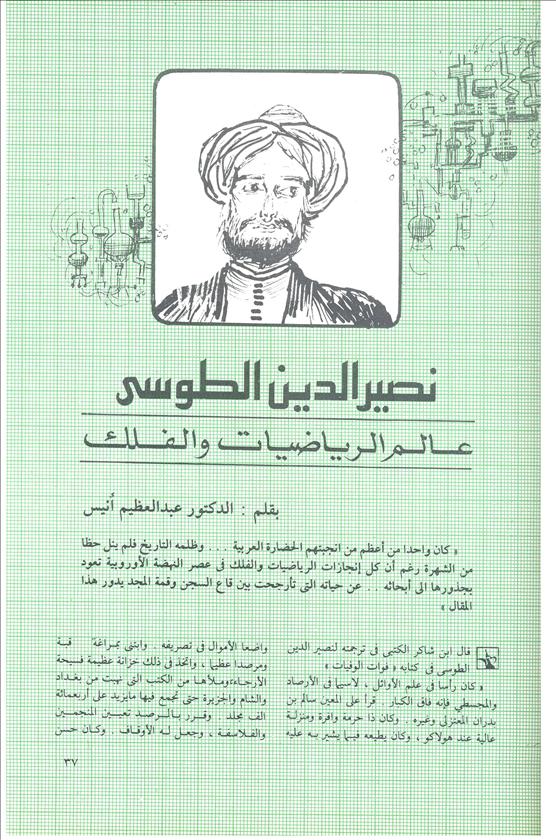 نصير الدين الطوسى
عالم الرياضيات والفلك
بقلم : الدكتور عبدالعظيم أنيس
« كان واحدا من أعظم من انجبتهم الحضارة العربية . . . وظلمه التاريخ فلم ينل حظا
من الشهرة رغم أن كل إنجازات الرياضيات والفلك في عصر النهضة الأوروبية تعود
بجذورها الى أبحاثه . . عن حياته التي تأرجحت بين قاع السجن وقمة المجد يدور هذا
المقال »
قال ابن شاكر الكتبى في ترجمته لنصير الدين
الطوسى في كتابه « فوات الوفيات »
« كان رأسا في علم الأوائل ، لاسيما في الأرصاد
والمجسطي فإنه فاق الكبار . قرأ على المعين سالم بن
بدران المعتزلى وغيره . وكان ذا حرمة وافرة ومنزلة
عالية عند هولاكو ، وكان يطيعه فيما يشير به عليه
واضعا الأموال في تصريفه . وابتنى بمراغة قبة
ومرصدا عظيما ، واتخذ في ذلك خزانة عظيمة فسيحة
الأرجاء وملأها من الكتب التي نهبت من بغداد
والشام والجزيرة حتى تجمع فيها مايزيد على أربعمائة
الف مجلد . وقرر بالرصد تعيين المنجمين
والفلاسفة ، وجعل له الأوقاف . وكان حسن
٣٧